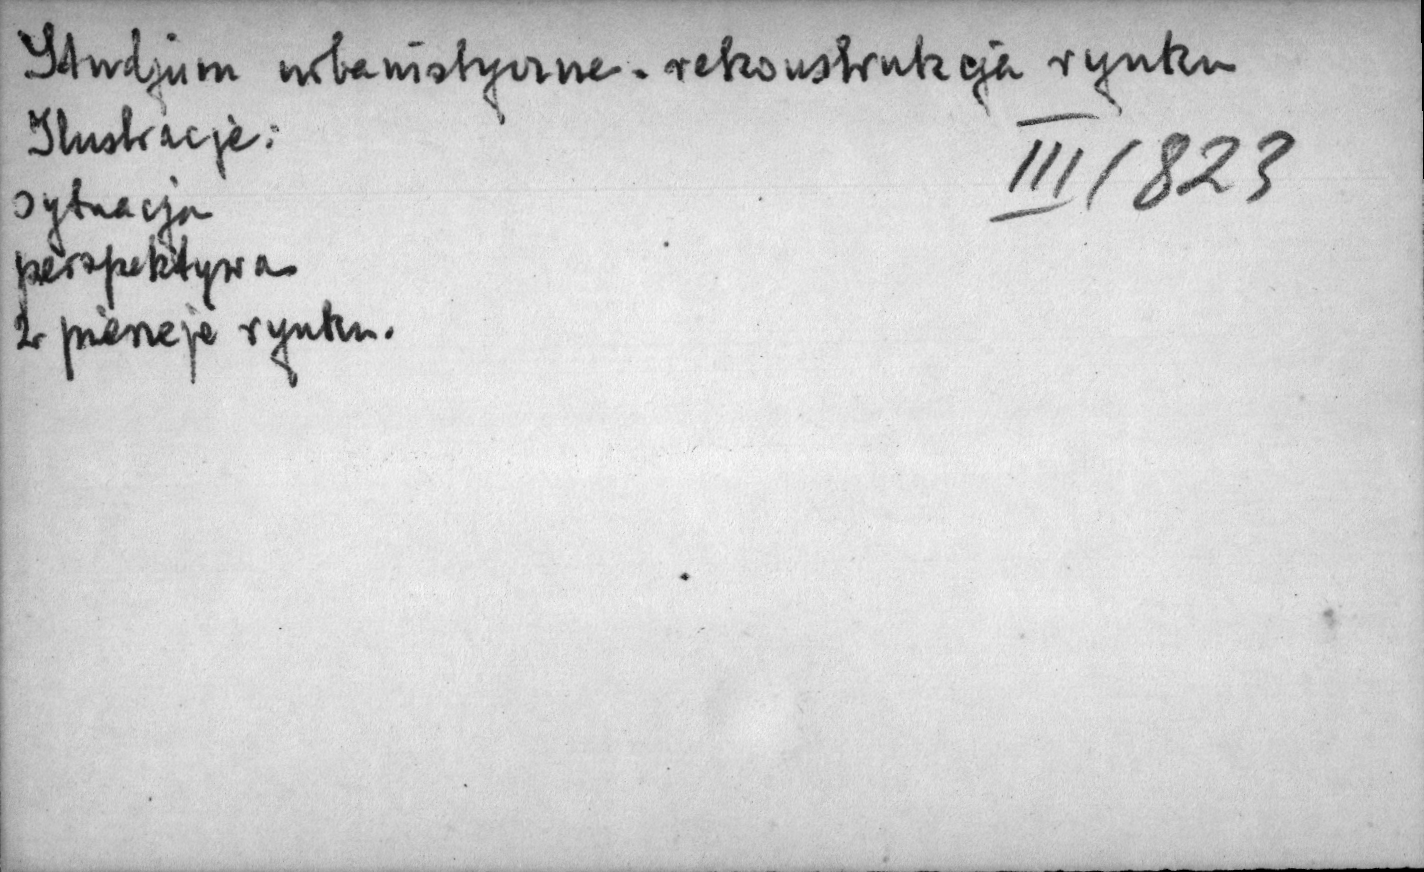 Studjum urbanistyczne. rekonstrukcja rynku
Ilustracje:
III/823
sytuacja
perspektywa
2 pierzeje rynku.